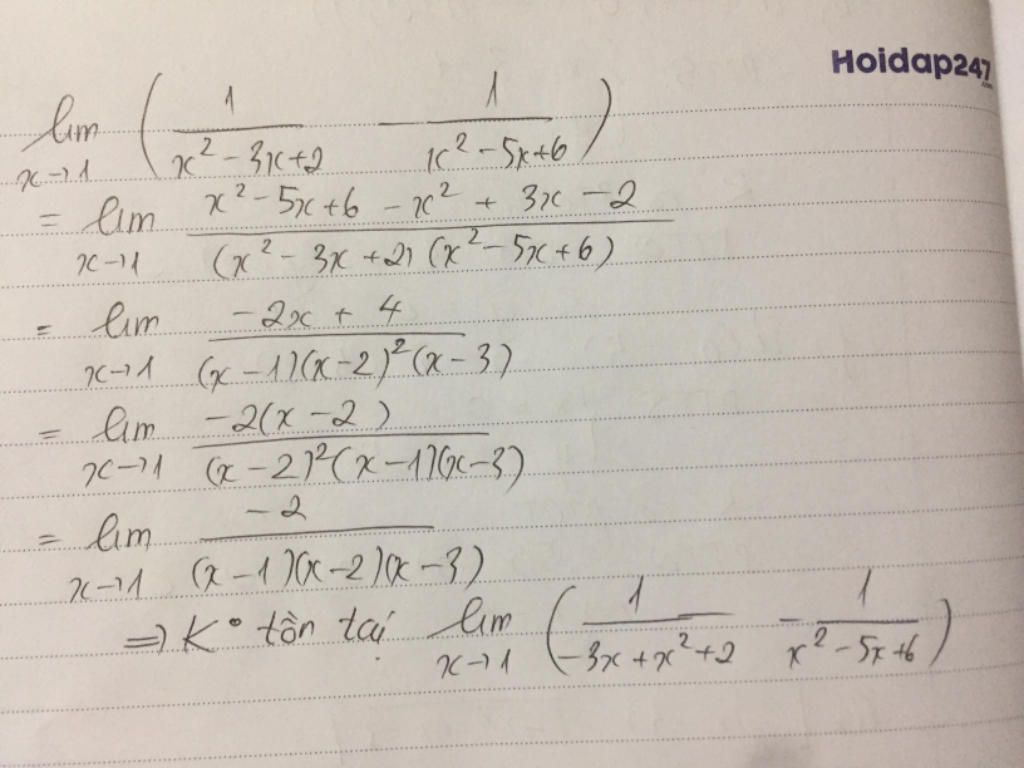 Hoidap247
.com
lim x→1 (1/(x² - 3x + 2) - 1/(x² - 5x + 6))
= lim x→1 (x² - 5x + 6 - x² + 3x - 2)/((x² - 3x + 2)(x² - 5x + 6))
= lim x→1 (-2x + 4)/((x - 1)(x - 2)²(x - 3))
= lim x→1 (-2(x - 2))/((x - 2)²(x - 1)(x - 3))
= lim x→1 (-2)/((x - 1)(x - 2)(x - 3))
⇒ K° tồn tại lim x→1 (1/(-3x + x² + 2) - 1/(x² - 5x + 6))